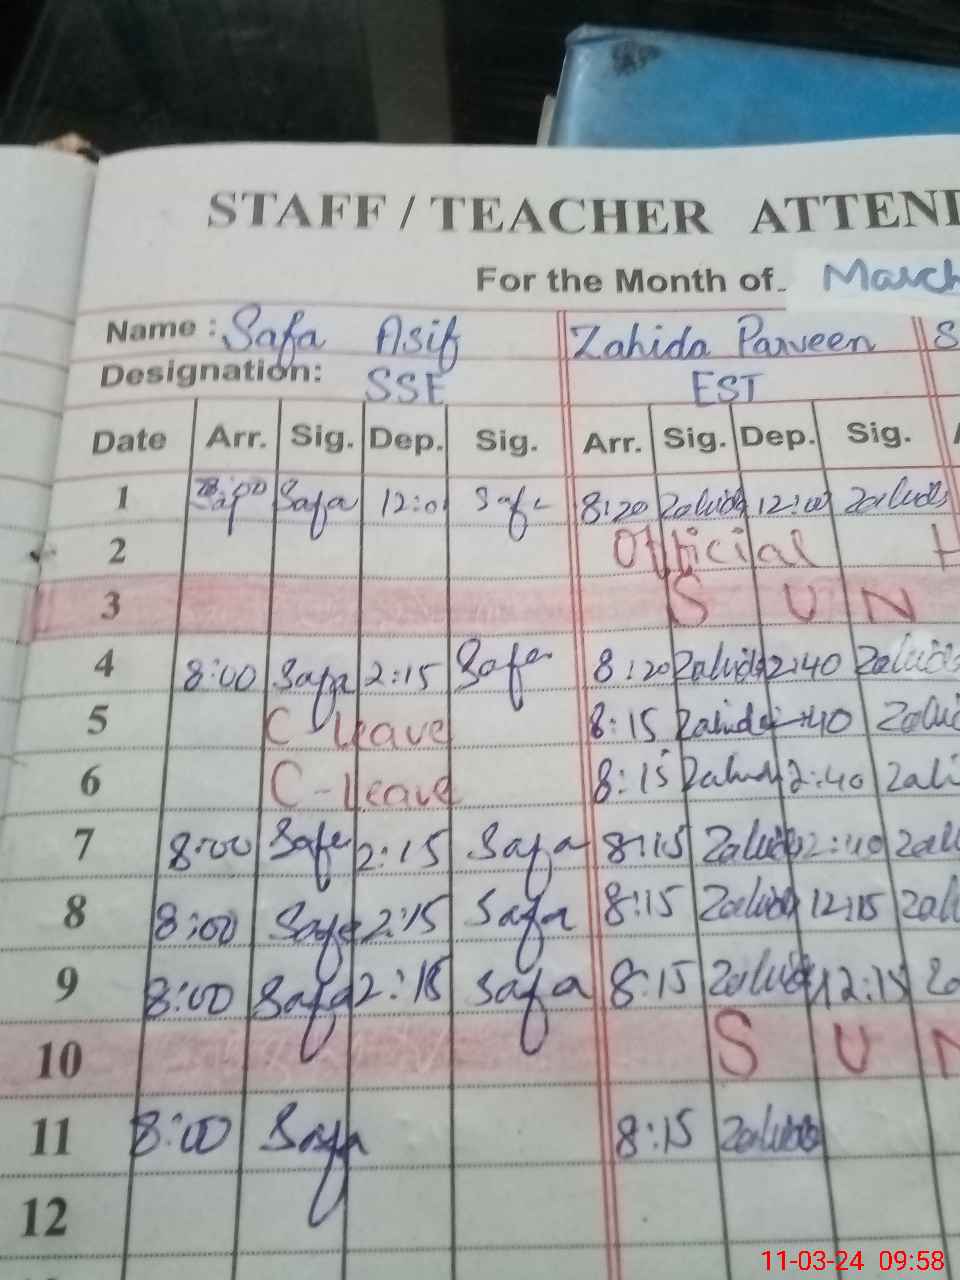 STAFF / TEACHER ATTEND
For the Month of March
Name : Safa Asif Zahida Parveen S
Designation: SSE EST
Date Arr. Sig. Dep. Sig. Arr. Sig. Dep. Sig. A
1 8:00 Safa 12:0 Safa 8:20 Zahida 12:00 Zahida
2 Official H
3 S U N
4 8:00 Safa 2:15 Safa 8:20 Zahida 2:40 Zahida
5 C-leave 8:15 Zahida 2:40 Zahid
6 C-leave 8:15 Zahida 2:40 Zahi
7 8:00 Safa 2:15 Safa 8:15 Zahida 2:40 Zah
8 8:00 Safa 2:15 Safa 8:15 Zahida 12:15 Zah
9 8:00 Safa 2:15 Safa 8:15 Zahida 12:15 Za
10 S U N
11 8:00 Safa 8:15 Zahida
12
11-03-24 09:58